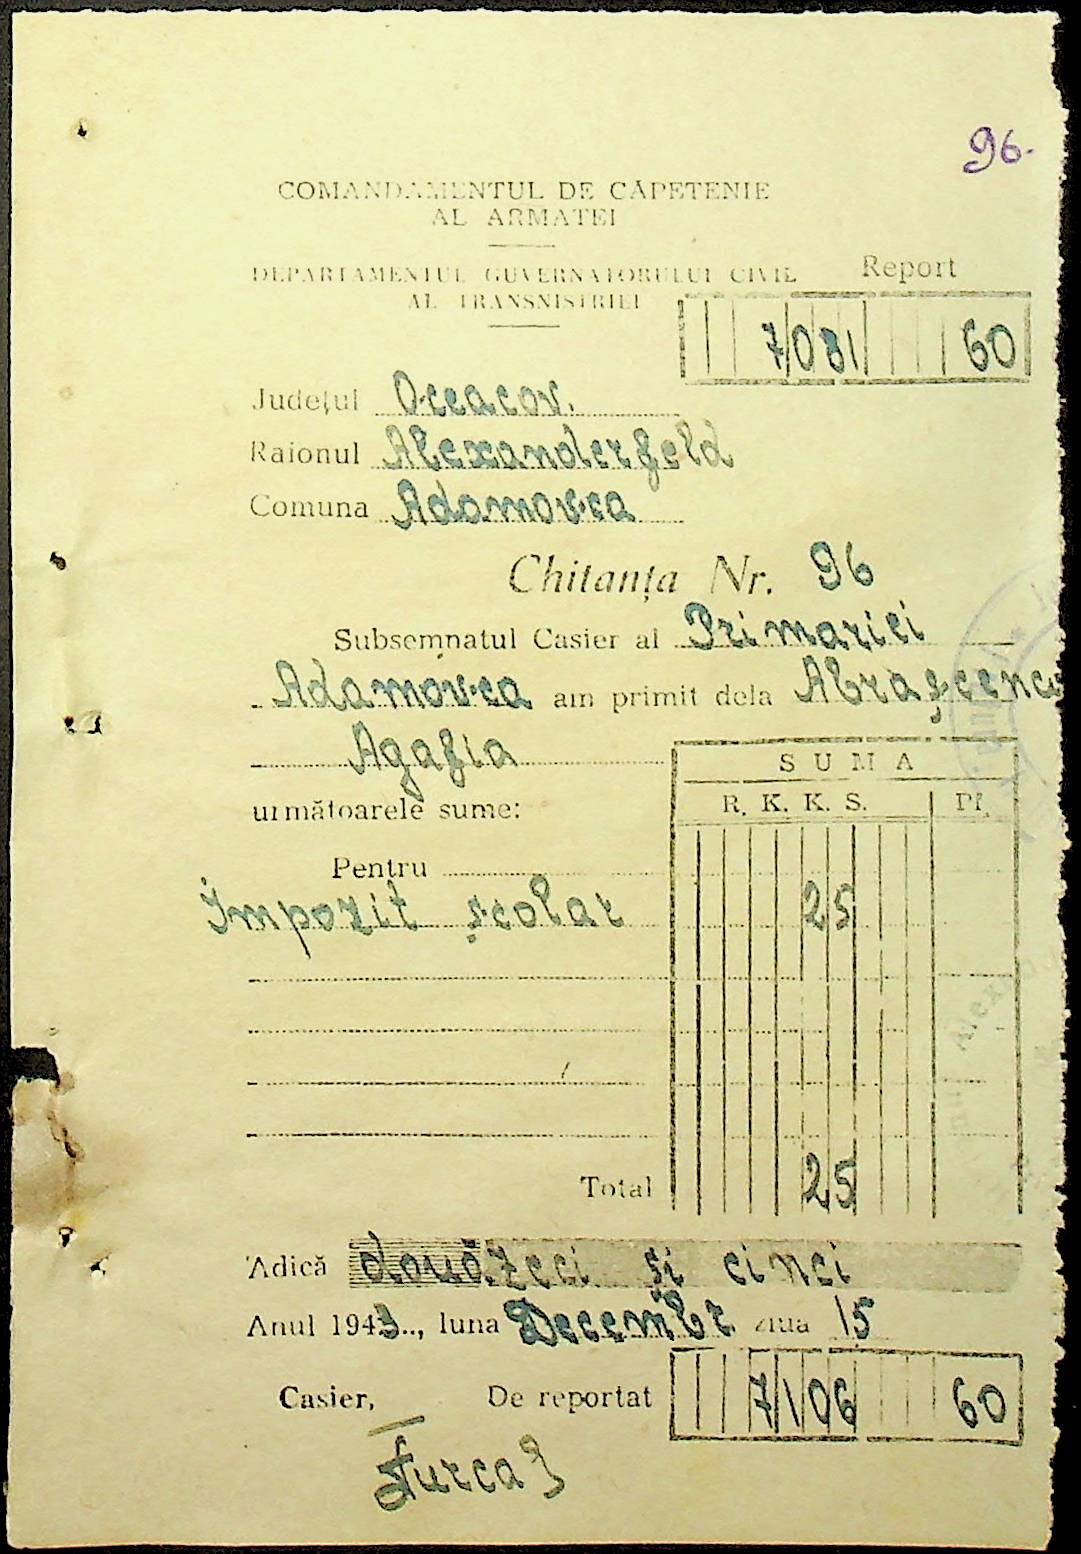 96.
COMANDAMENTUL DE CĂPETENIE
AL ARMATEI
DEPARTAMENTUL GUVERNATORULUI CIVIL
AL TRANSNISTRIEI
Report
7081 60
Județul Oceacov.
Raionul Alexanderfeld
Comuna Adamovca
Chitanța Nr. 96
Subsemnatul Casier al Primariei
Adamovca am primit dela Abrașcenco
Agafia
următoarele sume:
SUMA
R. K. K. S. Pf.
Pentru
Impozit școlar 25
Total 25
Adică douăzeci și cinci
Anul 1943.., luna Decembr ziua 15
Casier, De reportat 7106 60
Țurca